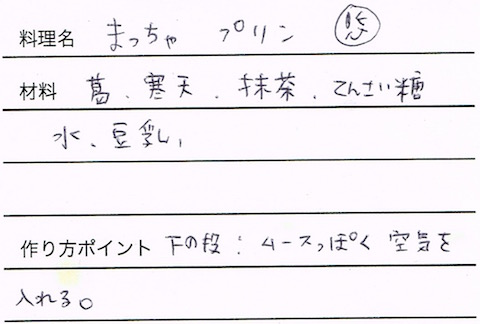 料理名 まっちゃ プリン 悠
材料 葛、寒天、抹茶、てんさい糖
水、豆乳、
作り方ポイント 下の段:ムースっぽく 空気を
入れる。